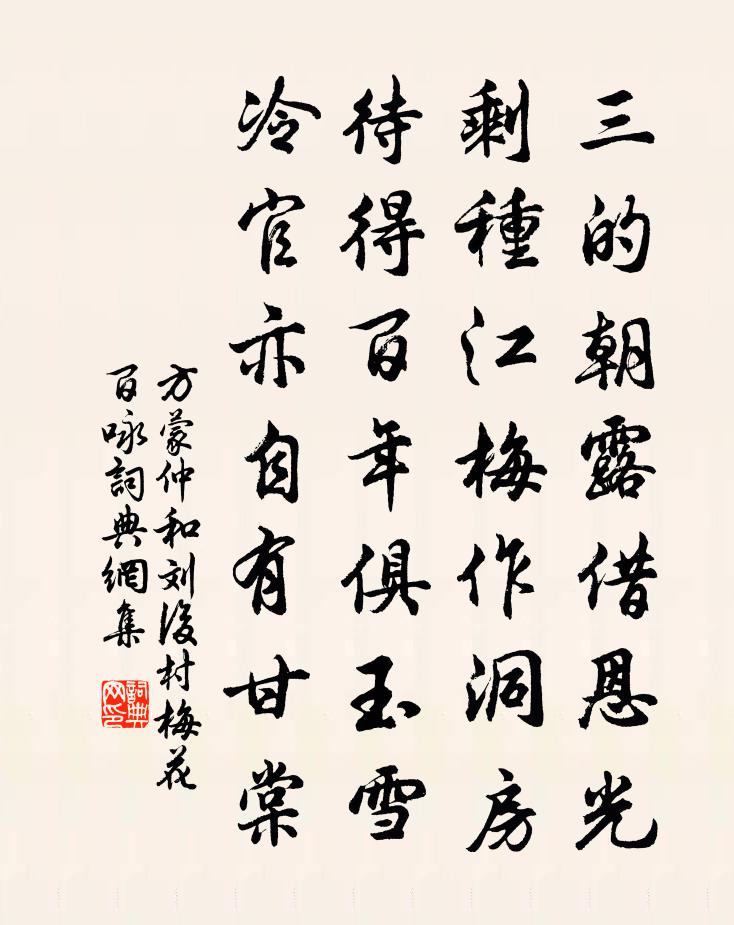 三的朝露借恩光
剩種江梅作洞房
待得百年俱玉雪
冷官亦自有甘棠
方蒙仲和刘後村梅花
百咏詞典網集
詞典
网印